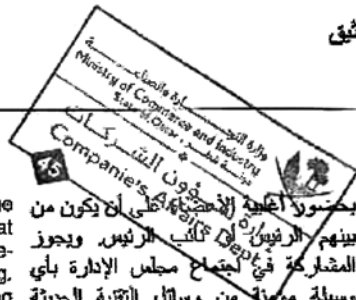 ثيق
وزارة التجـــارة والصناعـــة
Ministry of Commerce and Industry
دولـــة قطـــر
State of Qatar
إدارة شؤون الشـــركـــات
Companie's Affairs Dept.
45
بحضور أغلبية الأعضاء على أن يكون من
بينهم الرئيس أو نائب الرئيس ويجوز
المشاركة في اجتماع مجلس الإدارة بأي
وسيلة مؤمنة من وسائل التقنية الحديثة
at
e-
g,